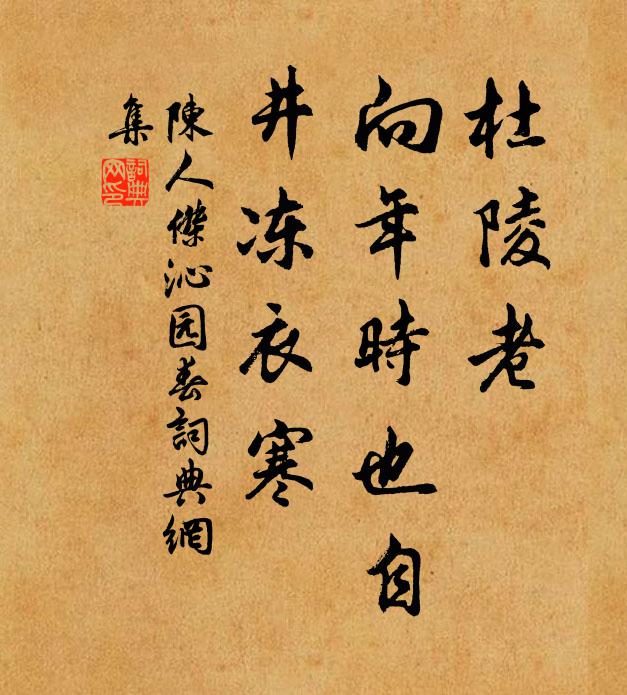 杜陵老
向年時也自
井冻衣寒
陳人傑沁园春詞典網
集
詞典网印